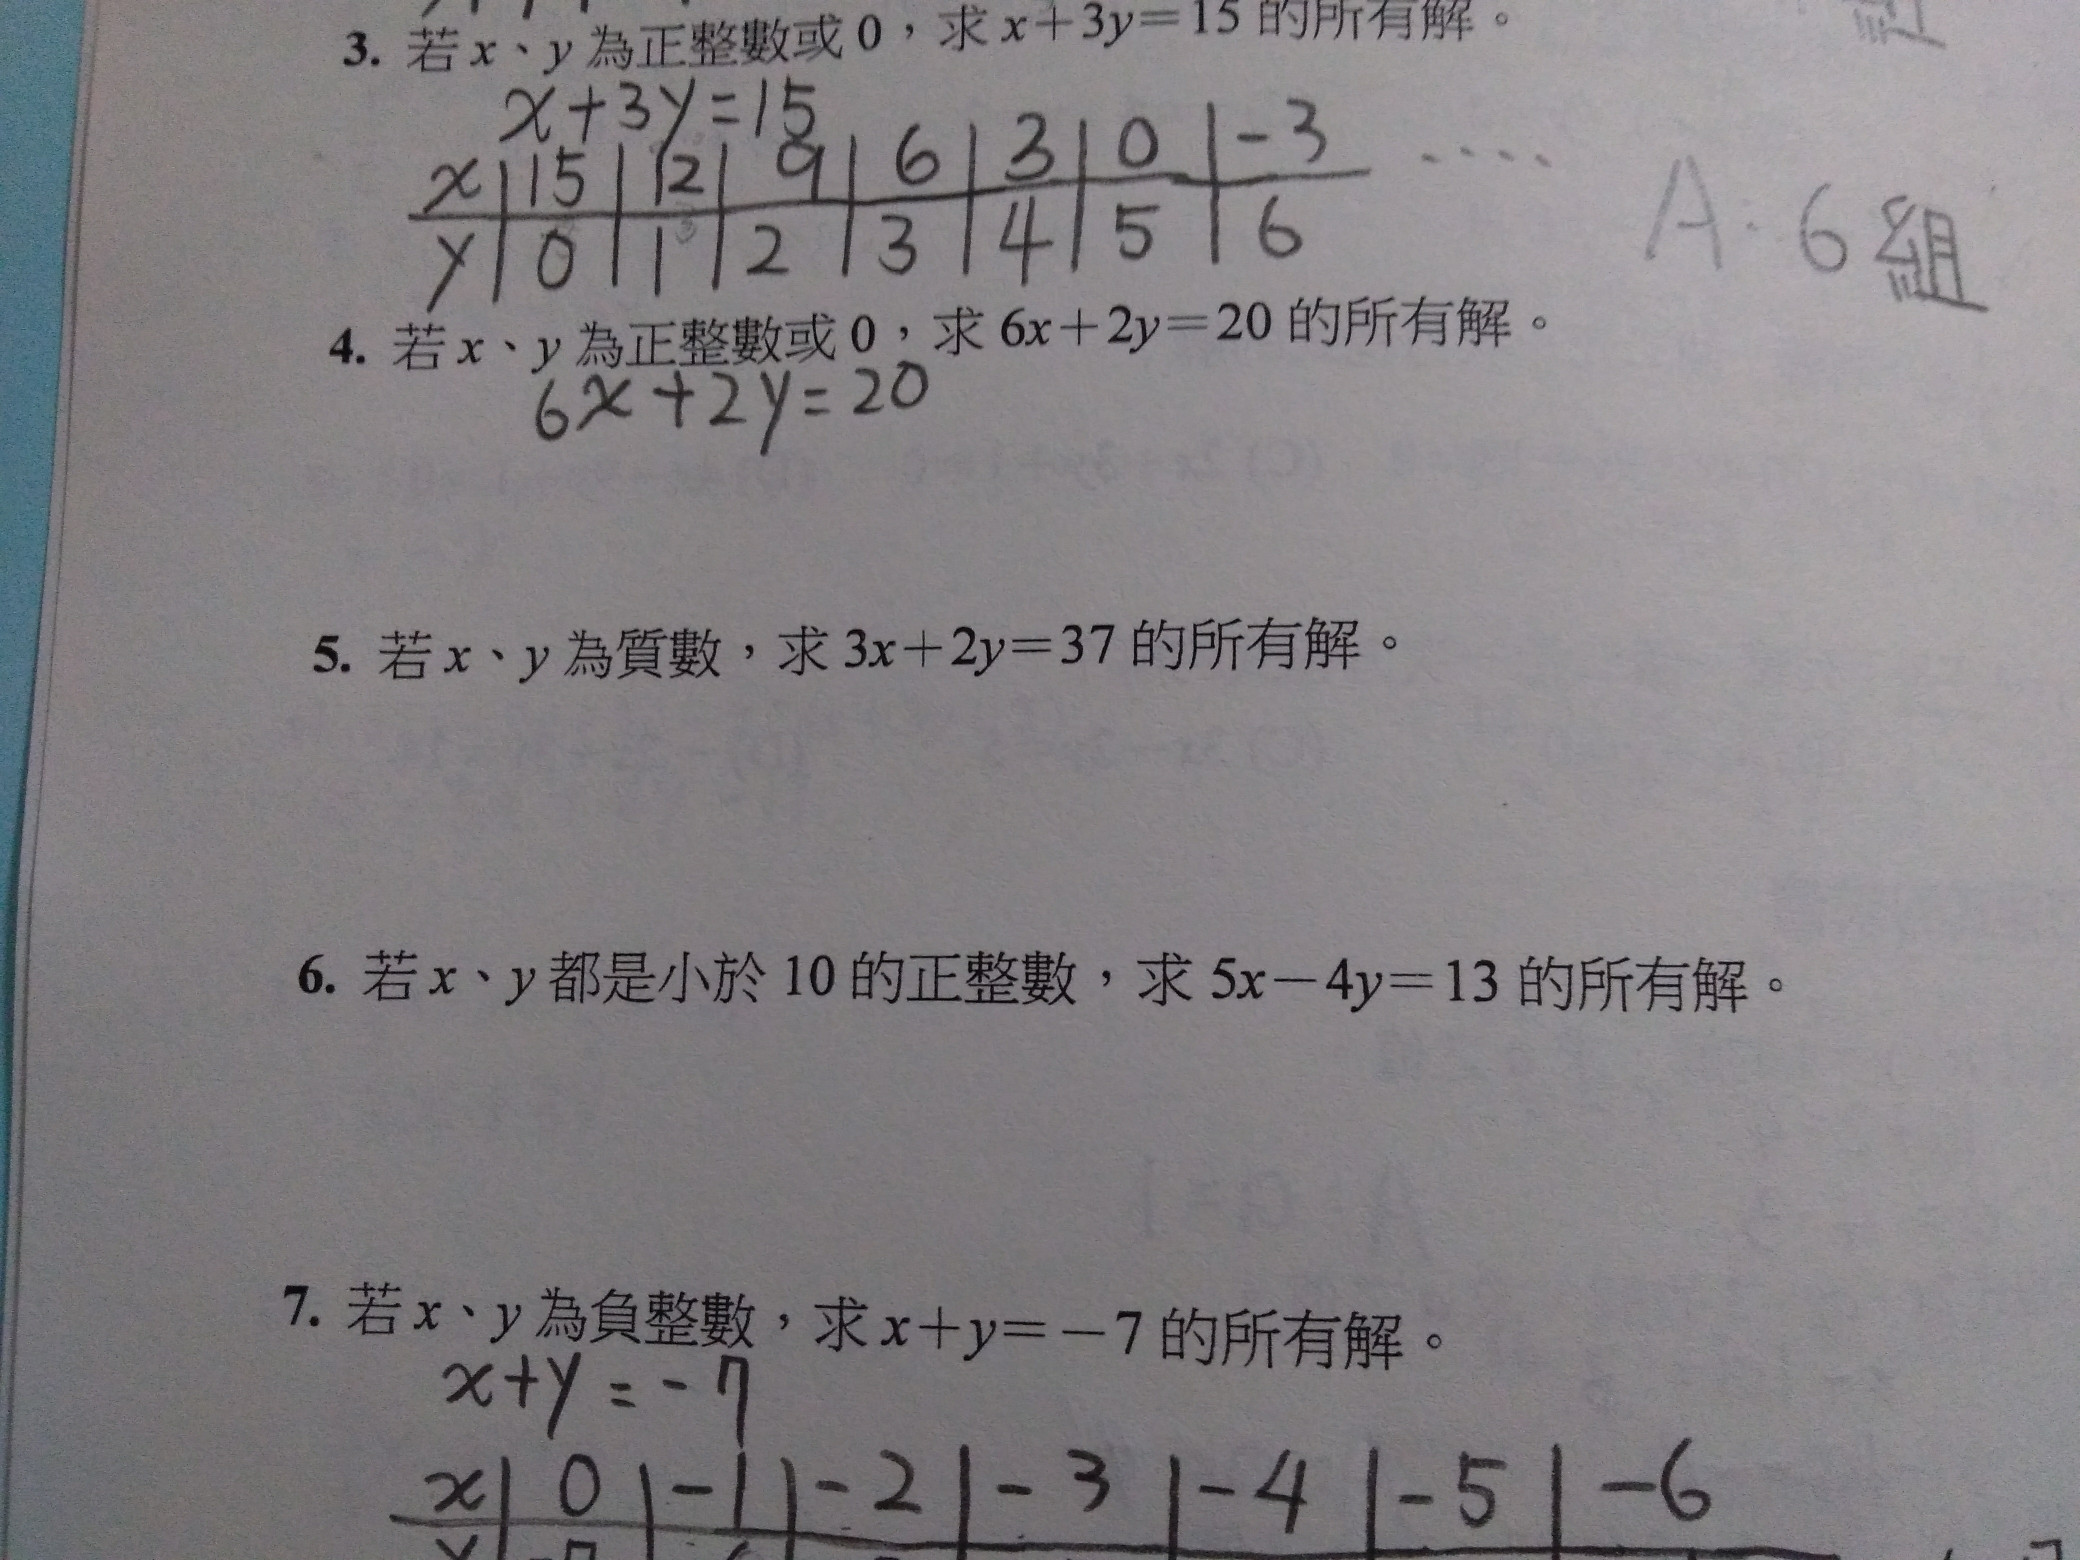 3. 若 x、y 為正整數或 0，求 x＋3y＝15 的所有解。
x+3y=15
x | 15 | 12 | 9 | 6 | 3 | 0 | -3 ....
y | 0 | 1 | 2 | 3 | 4 | 5 | 6
A: 6組
4. 若 x、y 為正整數或 0，求 6x＋2y＝20 的所有解。
6x+2y=20
5. 若 x、y 為質數，求 3x＋2y＝37 的所有解。
6. 若 x、y 都是小於 10 的正整數，求 5x－4y＝13 的所有解。
7. 若 x、y 為負整數，求 x＋y＝－7 的所有解。
x+y=-7
x | 0 | -1 | -2 | -3 | -4 | -5 | -6